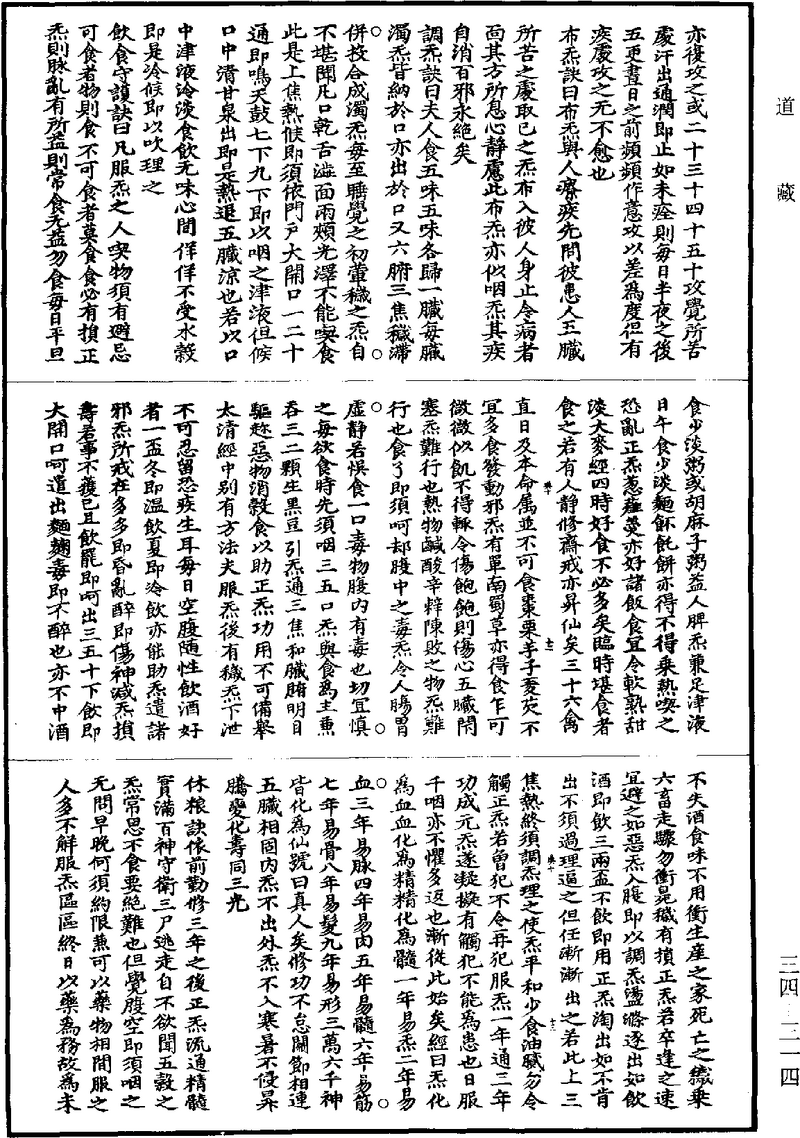 道藏
亦復攻之或二十三十四十五十攻覺所苦
處汗出通潤即止如未痊則每日半夜之後
五更晝日之前頻頻作意攻以差為度但有
疾處攻之无不愈也
布炁訣曰布炁與人療疾先問彼患人五臟
所苦之處取已之炁布入彼人身止令病者
面其方所息心靜慮此布炁亦似咽炁其疾
自消百邪永絕矣
調炁訣曰夫人食五味五味各歸一臟每臟
濁炁皆納於口亦出於口又六腑三焦穢滯
併投合成濁炁每至睡覺之初薰穢之炁自
不堪聞凡口乾舌澁面兩頰光澤不能喫食
此是上焦熱候即須依門戶大開口一二十
通即鳴天鼓七下九下即以咽之津液但候
口中清甘泉出即是熱退五臟涼也若以口
中津液冷淡食飲无味心間佯佯不受水穀
即是冷候即以吹理之
飲食守護訣曰凡服炁之人喫物須有避忌
可食者物則食不可食者莫食食必有損正
炁則脉亂有所益則常食无益勿食每日平旦
食少淡粥或胡麻子粥益人脾炁兼足津液
日午食少淡麵餅飥餅亦得不得乘熱喫之
恐亂正炁葱薤羹亦好諸飯食宜令軟熟甜
淡大麥經四時好食不必多矣臨時堪食者
食之若有人靜修齋戒亦昇仙矣三十六禽
直日及本命屬並不可食棗栗芋子菱芡不
宜多食發動邪炁有單南蜀草亦得食乍可
微微似飢不得輒令傷飽飽則傷心五臟閉
塞炁難行也熱物鹹酸辛辢陳敗之物炁難
行也食了即須呵却腹中之毒炁令人腸胃
虛靜若悮食一口毒物腹內有毒也切宜慎
之每欲食時先須咽三五口炁與食為主熏
吞三二顆生黑豆引炁通三焦和臟腑明目
驅趂惡物消穀食以助正炁功用不可備舉
太清經中別有方法夫服炁後有穢炁下泄
不可忍留恐疾生耳每日空腹隨性飲酒好
者一盃冬即溫飲夏即冷飲亦能助炁遣諸
邪炁所戒在多多即昏亂醉即傷神減炁損
壽若事不獲已且飲罷即呵出三五十下飲即
大開口呵遣出麵麹毒即不醉也亦不中酒
不失酒食味不用衝生產之家死亡之穢乘
六畜走驟勿衝晃穢有損正炁若卒逢之速
宜避之如惡炁入腹即以調炁盪滌逐出如飲
酒即飲三兩盃不飲即用正炁淘出如不肯
出不須過理逼之但任漸漸出之若此上三
焦熱終須調炁理之使炁平和少食油膩勿令
觸正炁若曾犯不令再犯服炁一年通三年
功成元炁遂凝擬有觸犯不能為患也日服
千咽亦不懼多返也漸從此始矣經曰炁化
為血血化為精精化為髓一年易炁二年易
血三年易脉四年易肉五年易髓六年易筋
七年易骨八年易髮九年易形三萬六千神
皆化為仙號曰真人矣修功不怠關節相連
五臟相固內炁不出外炁不入寒暑不侵昇
騰變化壽同三光
休粮訣依前勤修三年之後正炁流通精髓
實滿百神守衛三尸逃走自不欲聞五穀之
炁常思不食要絕難也但覺腹空即須咽之
无問早晚何須約限兼可以藥物相間服之
人多不解服炁區區終日以藥為務故為未
三四-三一四